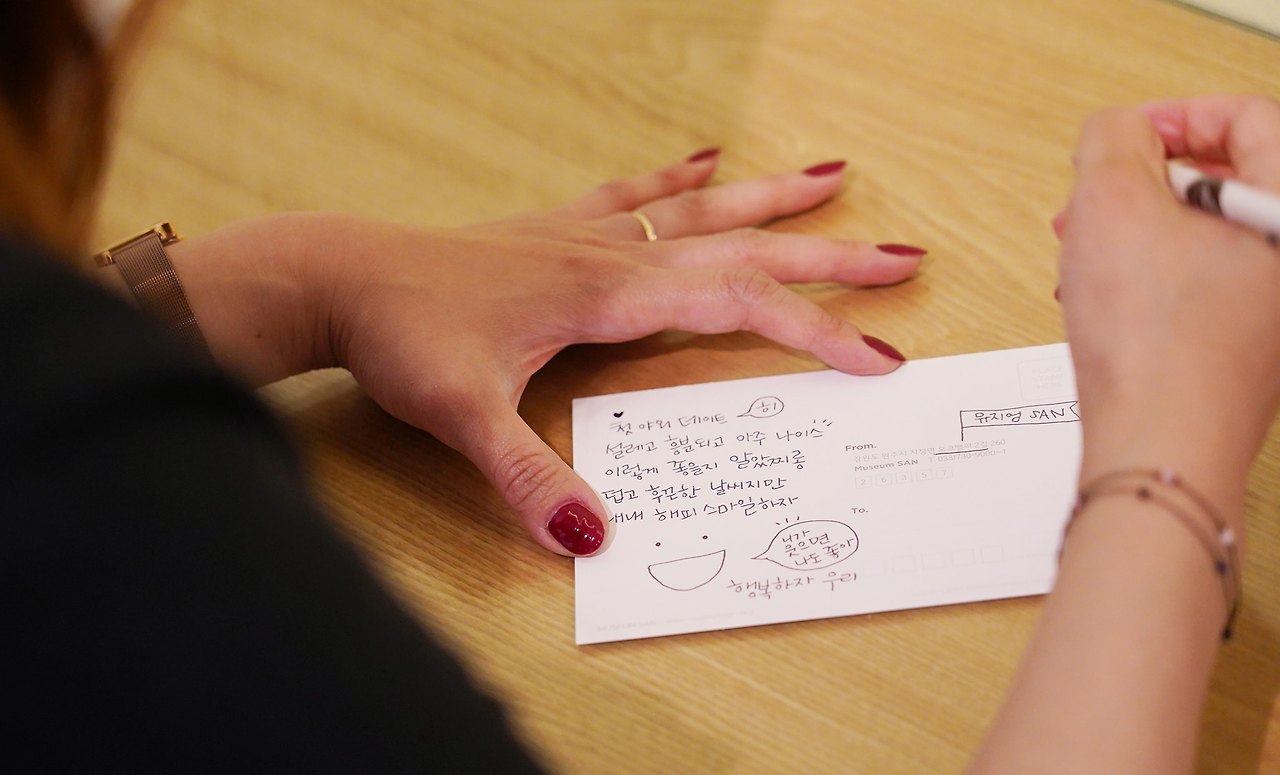 첫 야외 데이트
히
설레고 흥분되고 아주 나이스
이렇게 좋을지 알았찌롱
덥고 후끈한 날씨지만
내내 해피 스마일하자
니가
웃으면
나도 좋아
행복하자 우리
뮤지엄 SAN
PLACE
STAMP
HERE
From.
강원도 원주시 지정면 오크밸리 2길 260
Museum SAN T 033)730-9000~1
2 6 3 5 7
To.
MUSEUM SAN